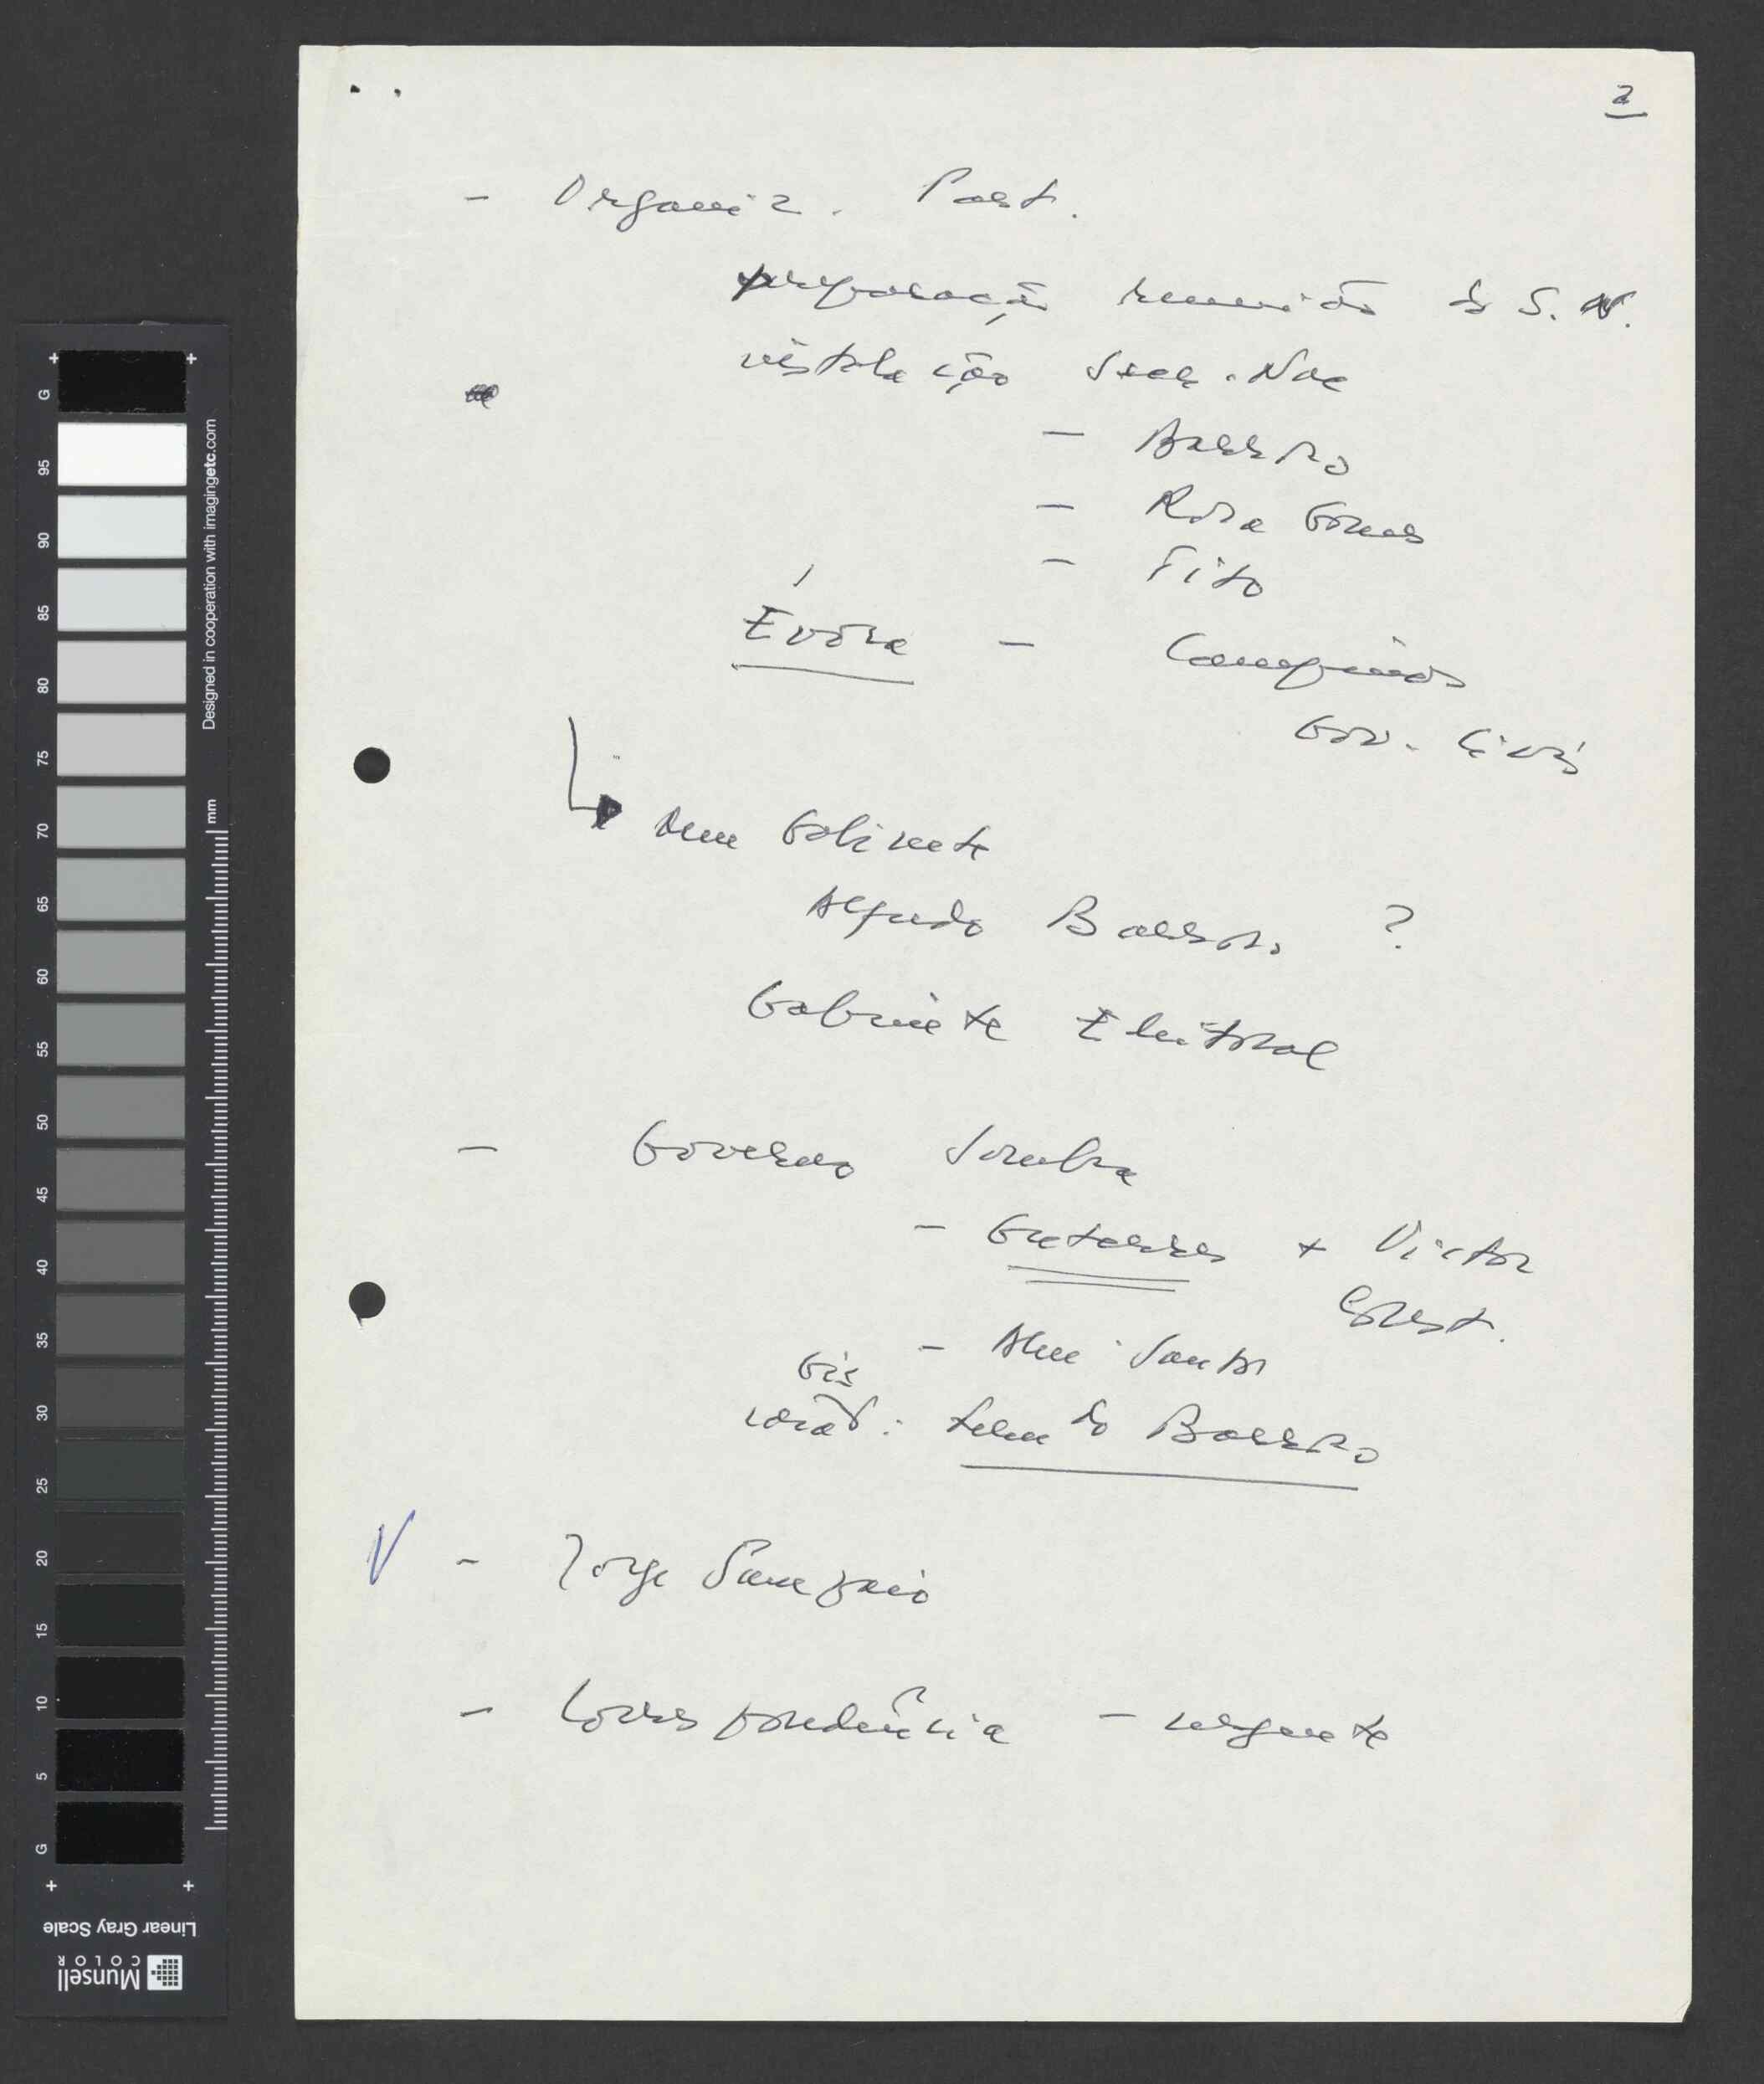 2
- Organiz. Part.
preparação reunião do S. N.
instalação Secr. Nac
- Barroso
- Rosa Gomes
- Tito
Évora - Campinos
Gov. Civis
Gabinete
Alfredo Barroso ?
Gabinete Eleitoral
- Governo Sombra
- Guterres + Victor
Const.
- Alm. Santos
coord: Barroso
V - Jorge Sampaio
- Correspondência - urgente
G
95
90
85
80
75
70
65
60
55
50
45
40
35
30
25
20
15
10
5
G
mm
Designed in cooperation with imagingetc.com
Linear Gray Scale
Munsell
COLOR